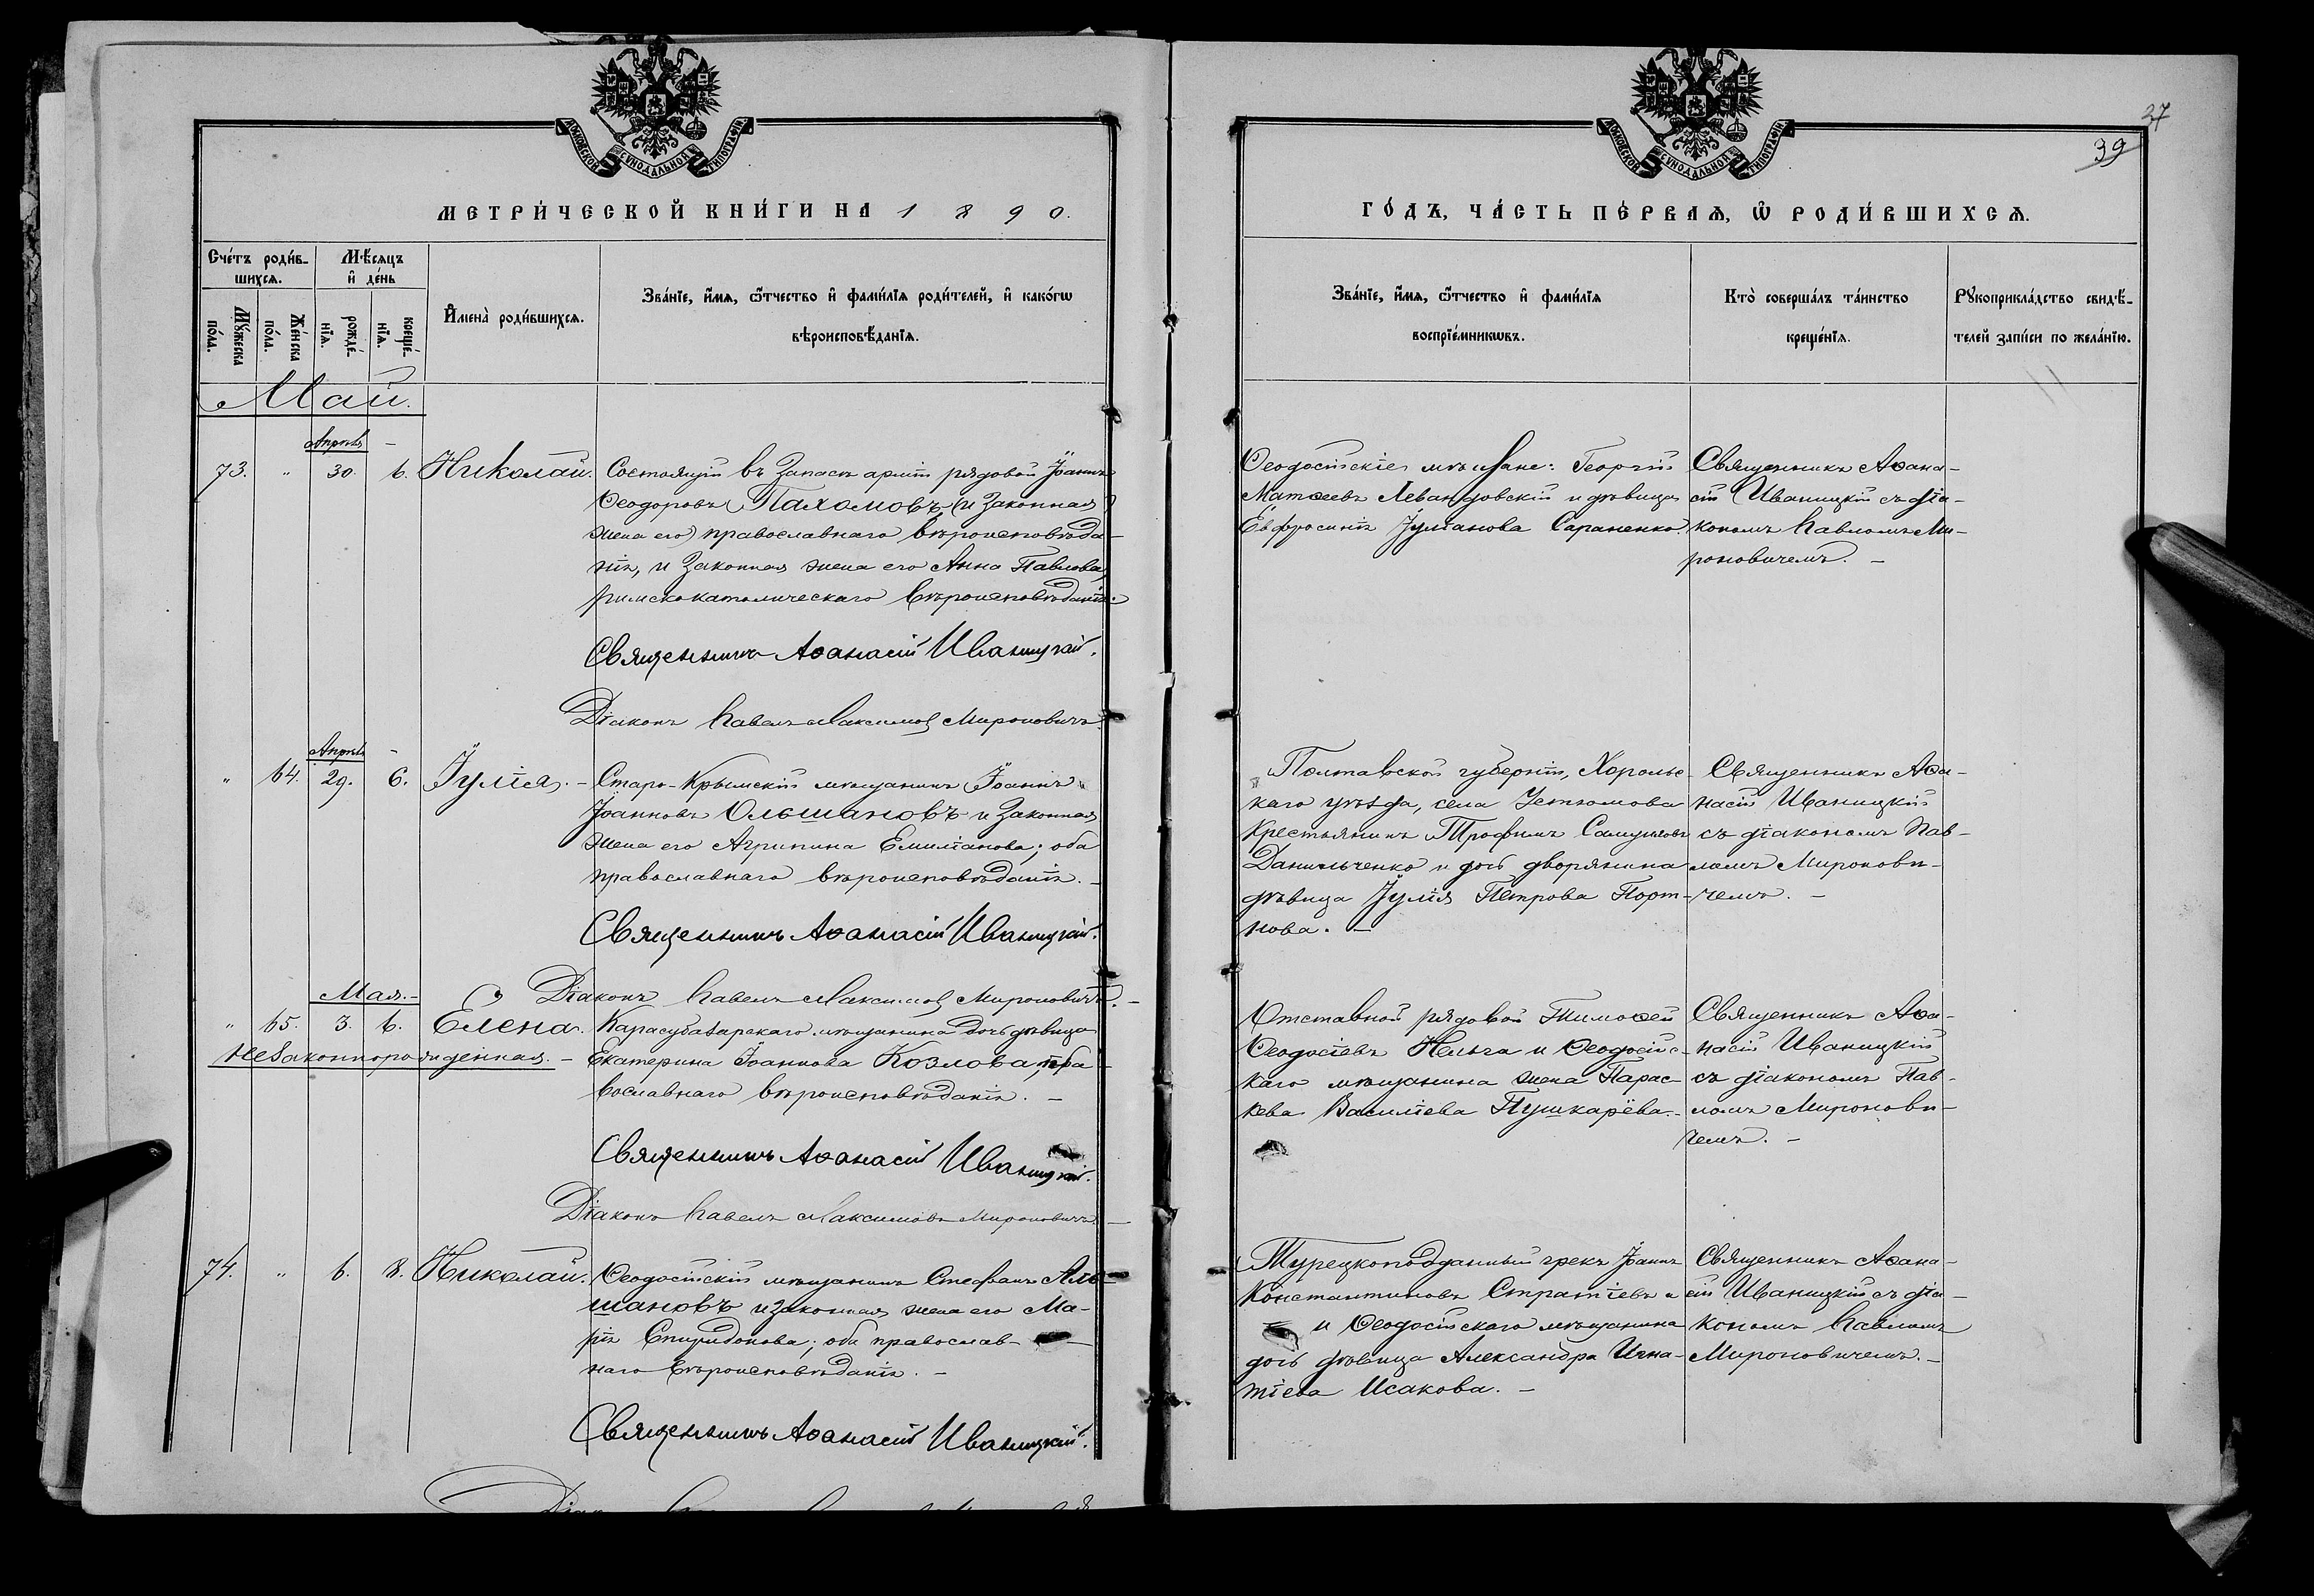 МОСКОВСКОЙ СѴНОДАЛЬНОЙ ТИПОГРАФІИ
МЕТРИ́ЧЕСКОЙ КНИ́ГИ НА 1890.
Сче́тъ роди́в-
шихсѧ.
Мѣ́сѧцъ
и҆ де́нь
Мꙋ́жеска
по́ла.
Же́нска
по́ла.
рожде́-
нїѧ.
креще́-
нїѧ.
И҆мена̀ роди́вшихсѧ.
Зва́нїе, и҆́мѧ, ѻ҆́тчество и҆ фами́лїѧ роди́телей, и҆ како́гѡ
вѣроисповѣ́данїѧ.
Май.
Апрѣля
73. " 30. 6. Николай. Состоящій въ Запасѣ арміи рядовой Іоаннъ
Ѳеодоровъ Пахомовъ (и Законная
жена его) православнаго вѣроисповѣда-
нія, и Законная жена его Анна Павлова,
римскокатолическаго вѣроисповѣданія.
Священникъ Аѳанасій Иваницкій.
Діаконъ Павелъ Максимов Мироновичъ.
Апрѣля
" 64. 29. 6. Іулія. - Старо-Крымскій мѣщанинъ Іоаннъ
Іоанновъ Ольшановъ и Законная
жена его Агрипина Емиліанова; оба
православнаго вѣроисповѣданія. -
Священникъ Аѳанасій Иваницкій.
Діаконъ Павелъ Максимов Мироновичъ. -
Мая. -
" 65. 3. 6. Елена. Карасубазарскаго мѣщанина дочь дѣвица
Незаконнорожденная. - Екатерина Іоаннова Козлова, пра-
вославнаго вѣроисповѣданія. -
Священникъ Аѳанасій Иваницкій.
Діаконъ Павелъ Максимовъ Мироновичъ. -
74. " 6. 8. Николай. Ѳеодосійскій мѣщанинъ Стефанъ Аль-
шановъ и законная жена его Ма-
рія Спиридонова; оба православ-
наго вѣроисповѣданія. -
Священникъ Аѳанасій Иваницкій.
37
39
МОСКОВСКОЙ СѴНОДАЛЬНОЙ ТИПОГРАФІИ
ГО́ДЪ, ЧА́СТЬ ПЕ́РВАѦ, Ѡ҆ РОДИ́ВШИХСѦ.
Зва́нїе, и҆́мѧ, ѻ҆́тчество и҆ фами́лїѧ
воспрїе́мникѡвъ.
Кто̀ соверша́лъ та́инство
креще́нїѧ.
Рꙋкоприкла́дство свидѣ́-
телей за́писи по жела́нїю.
Ѳеодосійскіе мѣщане: Георгій
Матѳеевъ Левандовскій и дѣвица
Евфросинія Іуліанова Сараненко.
Священникъ Аѳана-
сій Иваницкій съ діа-
кономъ Павломъ Ми-
роновичемъ. -
Полтавской губерніи, Хорольс-
каго уѣзда, села
Крестьянинъ Трофимъ Самуиловъ
Данильченко и дочь дворянина
дѣвица Іулія Петрова Порт-
нова. -
Священникъ Аѳа-
насій Иваницкій
съ діакономъ Пав-
ломъ Миронови-
чемъ. -
Отставной рядовой Тимоѳей
Ѳеодосіевъ и Ѳеодосійс-
каго мѣщанина жена Парас-
кева Василіева Пушкарёва. -
Священникъ Аѳа-
насій Иваницкій
съ діакономъ Пав-
ломъ Миронови-
чемъ. -
Турецкоподданный грекъ Іоаннъ
Константиновъ Стратіевъ и
и Ѳеодосійскаго мѣщанина
дочь дѣвица Александра Игна-
тіева Исакова. -
Священникъ Аѳана-
сій Иваницкій съ діа-
кономъ Павломъ
Мироновичемъ. -